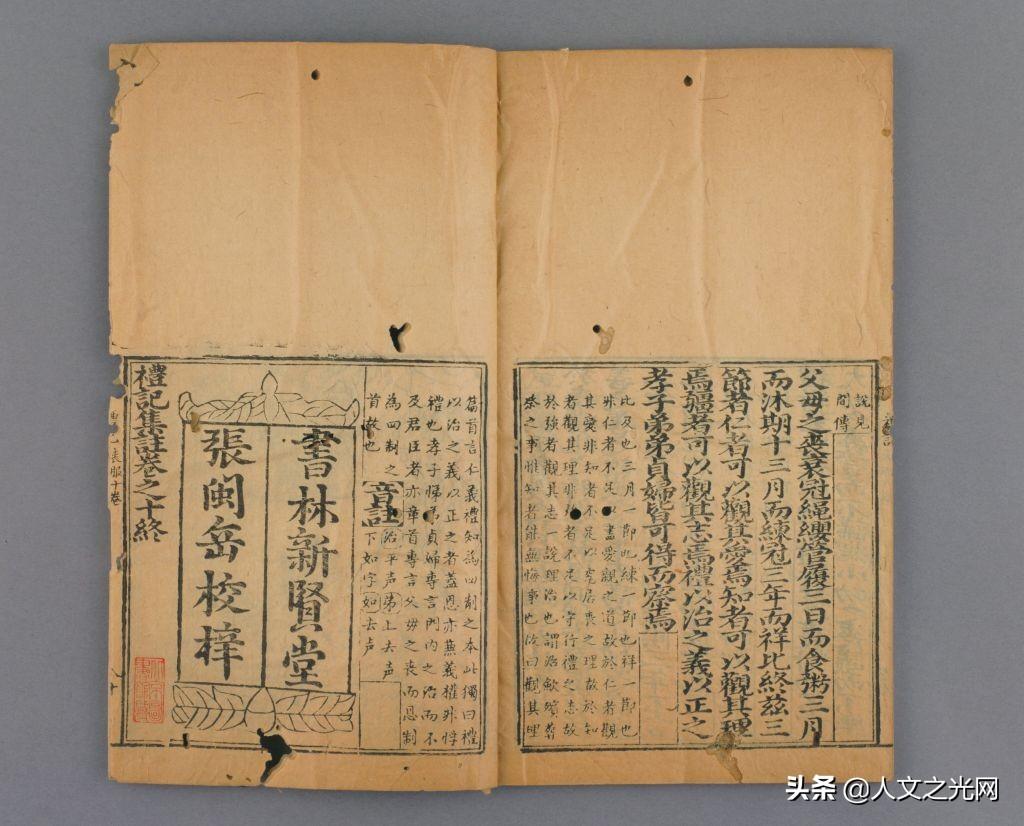 說見
間傳
父母之喪衰冠繩纓菅屨三日而食粥三月
而沐期十三月而練冠三年而祥比終茲三
節者仁者可以觀其愛焉知者可以觀其理
焉彊者可以觀其志焉禮以治之義以正之
孝子弟弟貞婦皆可得而察焉
比及也三月一節也練一節也祥一節也
非仁者不足以盡愛親之道故於仁者觀
其愛非知者不足以究居喪之理故於知
者觀其理非強者不足以守行禮之志故
於強者觀其志一說理治也謂治斂殯葬
祭之事惟知者能無悔事也故曰觀其理
篇首言仁義禮知為四制之本此獨曰禮
以治之義以正之者蓋恩亦兼義權非悖
禮也孝子悌弟貞婦專言門內之治而不
及君臣者亦章首專言父母之喪而恩制
為四制之
首故也
音註
治平声弟上去声
下如字 去声
書林新賢堂
張閩岳校梓
禮記集註卷之十終
头条 @人文之光网